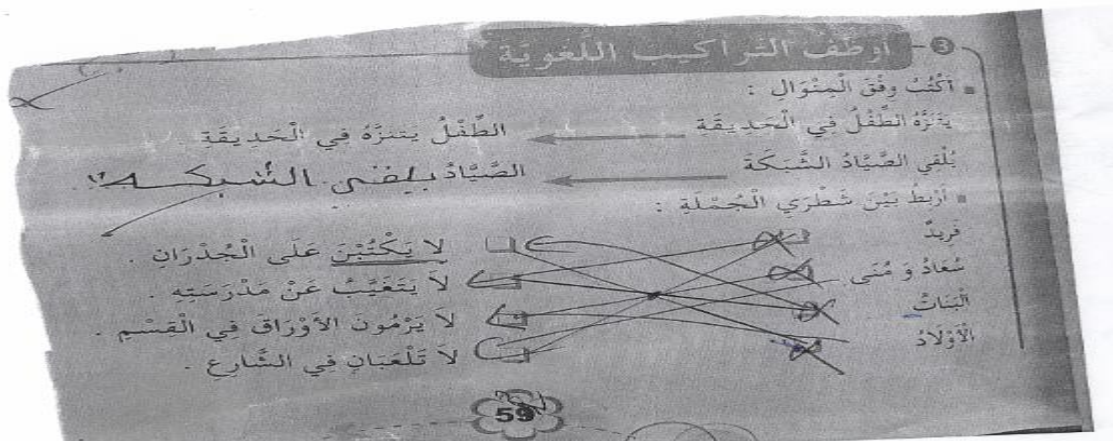 3 أُوَظِّفُ التَّرَاكِيبَ اللُّغَوِيَّةَ
▪ أَكْتُبُ وِفْقَ الْمِنْوَالِ :
يَتَنَزَّهُ الطِّفْلُ فِي الْحَدِيقَةِ الطِّفْلُ يَتَنَزَّهُ فِي الْحَدِيقَةِ .
يُلْقِي الصَّيَّادُ الشَّبَكَةَ الصَّيَّادُ يلقي الشبكة
▪ أَرْبِطُ بَيْنَ شَطْرَيِ الْجُمْلَةِ :
فَرِيدٌ لَا يَكْتُبْنَ عَلَى الْجُدْرَانِ .
سُعَادُ وَ مُنَى لَا يَتَغَيَّبُ عَنْ مَدْرَسَتِهِ .
الْبَنَاتُ لَا يَرْمُونَ الْأَوْرَاقَ فِي الْقِسْمِ .
الْأَوْلَادُ لَا تَلْعَبَانِ فِي الشَّارِعِ .
59